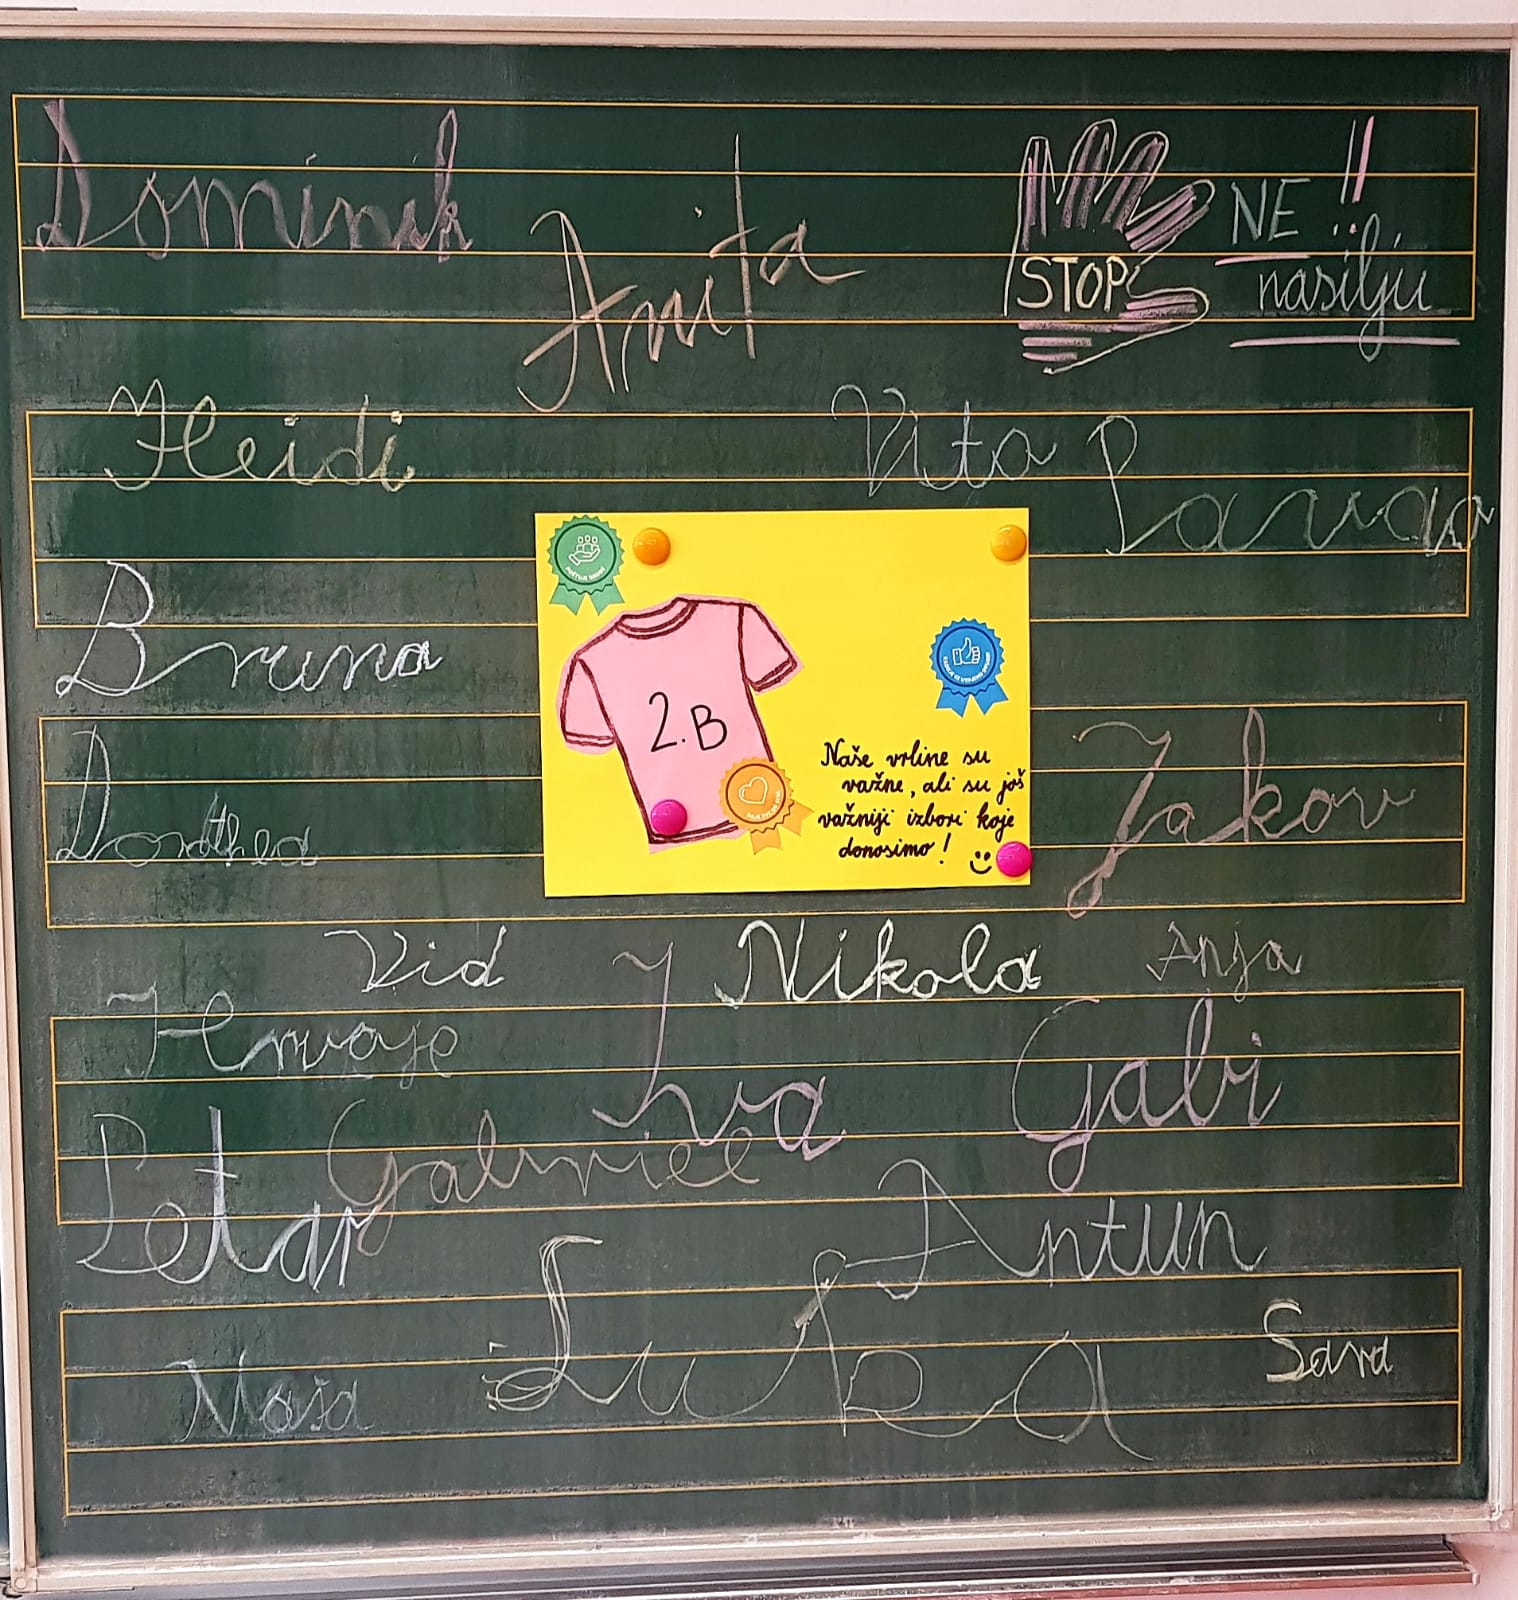 Dominik
Anita
STOP
NE !!
nasilju
Heidi
Vita
Pavao
Bruna
2.B
Naše vrline su
važne, ali su još
važniji izbori koje
donosimo!
Dorothea
Jakov
Vid
Nikola
Anja
Hrvoje
Iva
Gabi
Petar
Gabriel
Antun
Luka
Sara
Maša